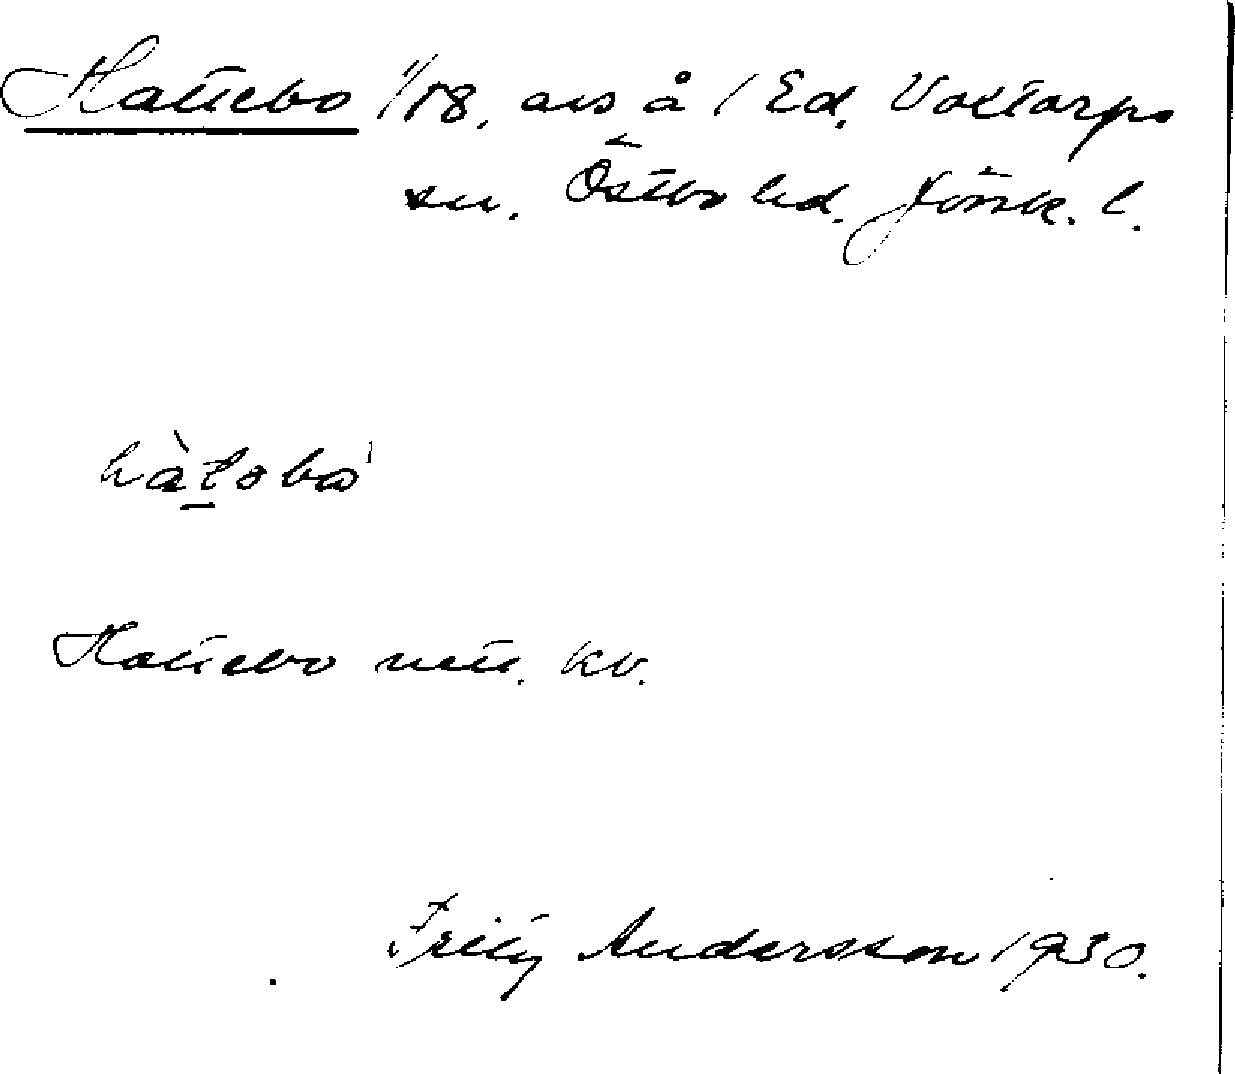 Hattebo 1/18, avs å 1 Ed, Voxtorps
sn. Östbo hd. Jönk. l.
hàtəbo
Hattebo mtl. kv.
Fritz Andersson 1930.